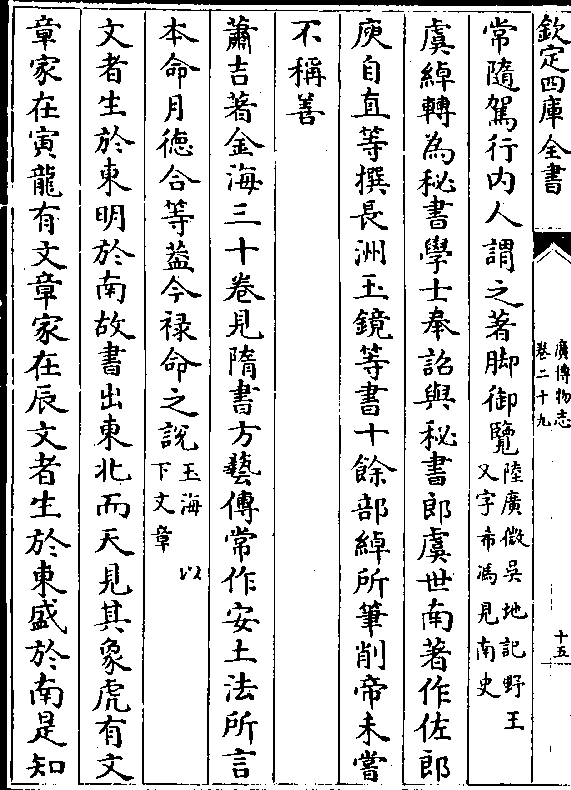 欽定四庫全書
廣博物志
卷二十九
十五
常隨駕行内人謂之著脚御覽陸廣微吳地記野王
又字希馮見南史
虞綽轉為秘書學士奉詔與秘書郎虞世南著作佐郎
庾自直等撰長洲玉鏡等書十餘部綽所筆削帝未嘗
不稱善
蕭吉著金海三十卷見隋書方藝傳常作安土法所言
本命月德合等葢今禄命之說玉海 以
下文章
文者生於東明於南故書出東北而天見其象虎有文
章家在寅龍有文章家在辰文者生於東盛於南是知